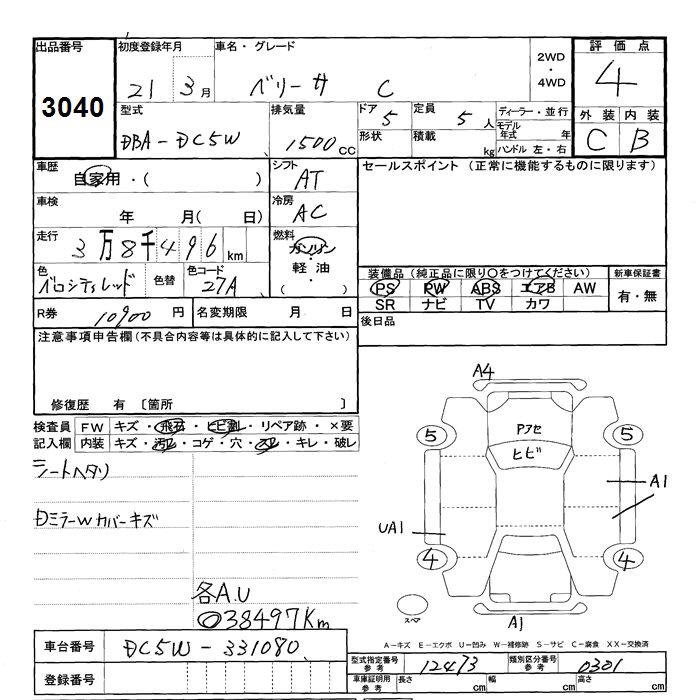 出品番号 初度登録年月 車名・グレード 2WD・4WD 評価点
3040 21 3月 ベリーサ C 4
型式 排気量 ドア 5 定員 5人 ディーラー・並行 外装 内装
DBA-DC5W 1500CC 形状 積載 kg モデル年式 年 C B
ハンドル 左・右
車歴 自家用・( ) シフト AT セールスポイント (正常に機能するものに限ります)
車検 年 月( 日) 冷房 AC
走行 3万8千496km 燃料 ガソリン・軽油・( )
色 ベロシティレッド 色替 色コード 27A
装備品 (純正品に限り○をつけてください) 新車保証書
PS PW ABS エアB AW 有・無
SR ナビ TV カワ
R券 10900円 名変期限 月 日 後日品
注意事項申告欄(不具合内容等は具体的に記入して下さい)
修復歴 有 〔箇所 〕
検査員 FW キズ・飛石・ヒビ割レ・リペア跡・×要
記入欄 内装 キズ・汚レ・コゲ・穴・スレ・キレ・破レ
シートヘタリ
DミラーWカバーキズ
各A.U
◎38497Km
A4
5 Pフセ 5
ヒビ
A1
UA1
4 4
スペア A1
A-キズ E-エクボ U-凹み W-補修跡 S-サビ C-腐食 XX-交換済
車台番号 DC5W-331080 型式指定番号 参考 12473 類別区分番号 参考 0301
登録番号 車庫証明用 参考 長さ cm 幅 cm 高さ cm